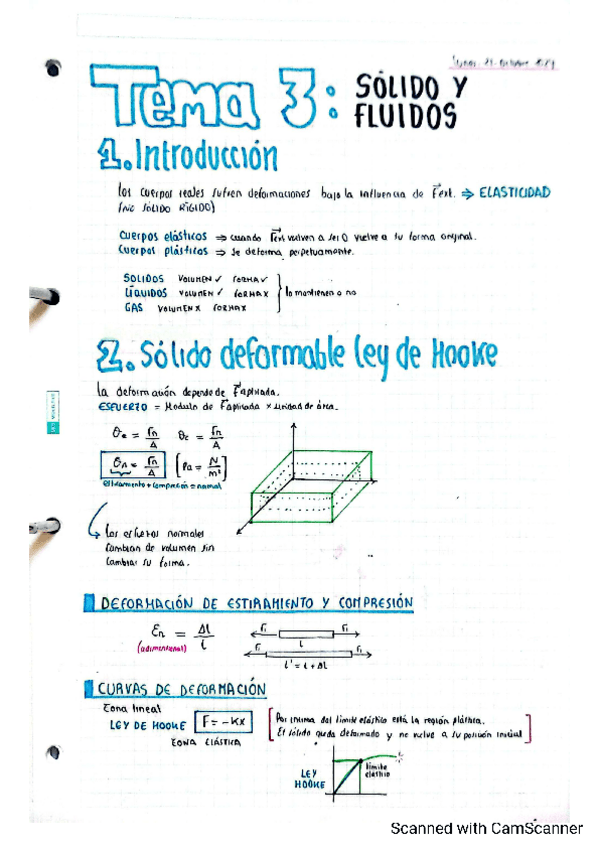 Tema 3: SÓLIDO Y FLUIDOS
1. Introducción
los cuerpos reales sufren deformaciones bajo la influencia de Fext. ⇒ ELASTICIDAD
(NO SÓLIDO RÍGIDO)
Cuerpos elásticos ⇒ cuando Fext vuelven a ser 0 vuelve a su forma original.
Cuerpos plásticos ⇒ se deforma perpetuamente.
SOLIDOS VOLUMEN ✓ FORMA ✓
LÍQUIDOS VOLUMEN ✓ FORMA X
lo mantienen o no
GAS VOLUMEN X FORMA X
2. Sólido deformable ley de Hooke
la deformación depende de Faplicada.
ESFUERZO = Modulo de Faplicada × unidad de área.
σe = Fn/A σc = Fn/A
σn = Fn/A [Pa = N/m²]
estiramiento + compresión = normal
Los esfuerzos normales
cambian de volumen sin
cambiar su forma.
DEFORMACIÓN DE ESTIRAMIENTO Y COMPRESIÓN
En = Δl/l
(adimensional)
l
l' = l + Δl
CURVAS DE DEFORMACIÓN
Zona lineal
LEY DE HOOKE F = -Kx
ZONA ELÁSTICA
Por encima del límite elástico está la región plástica.
El sólido queda deformado y no vuelve a su posición inicial
LEY HOOKE
límite elástico
Scanned with CamScanner